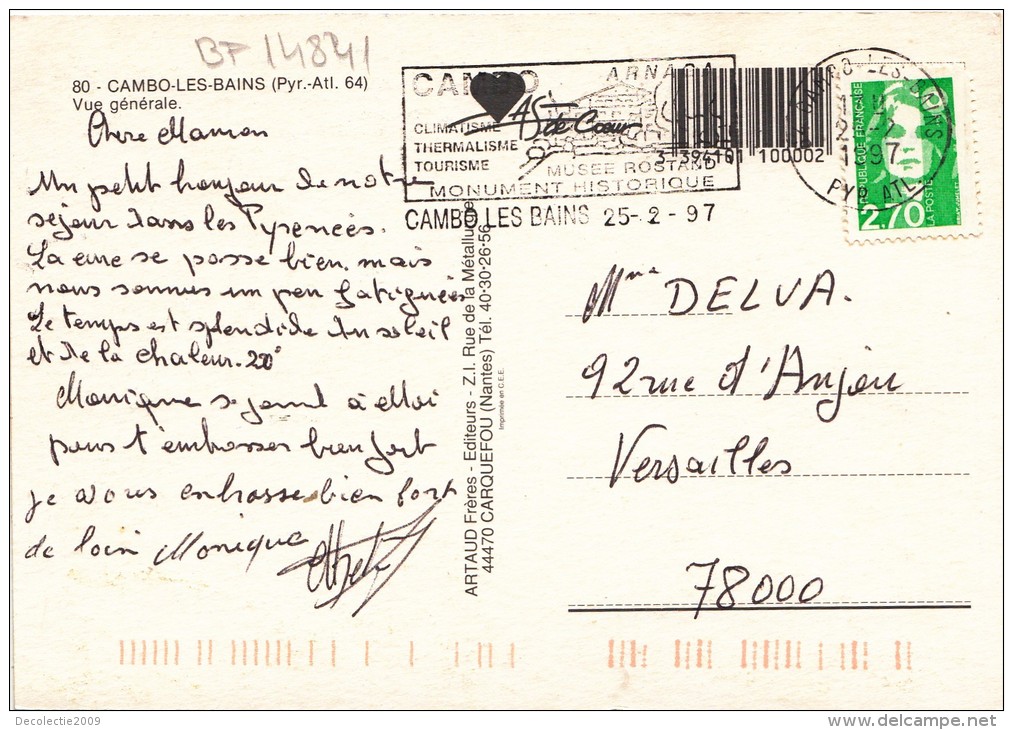 BF 14841
80 - CAMBO-LES-BAINS (Pyr.-Atl. 64)
Vue générale.
Chère Maman
Un petit bonjour de notre
séjour dans les Pyrénées.
La cure se passe bien. mais
nous sommes un peu fatiguées
Le temps est splendide du soleil
et de la chaleur. 20°
Monique se joint à Moi
pour t'embrasser bien fort
je vous embrasse bien fort
de loin Monique
ARTAUD Frères - Editeurs - Z.I. Rue de la Métallurgie
44470 CARQUEFOU (Nantes) Tél. 40.30.26.56
Imprimée en C.E.E.
CAMBO
ARNAGA
AS de Cœur
CLIMATISME
THERMALISME
TOURISME
MUSEE ROSTAND
MONUMENT HISTORIQUE
CAMBO LES BAINS 25-2-97
3 394101 100002
CAMBO-LES-BAINS
1997
PYR. ATL.
REPUBLIQUE FRANÇAISE
2,70
LA POSTE
Mme DELVA.
92 rue d'Anjou
Versailles
78000
Decolectie2009
www.delcampe.net